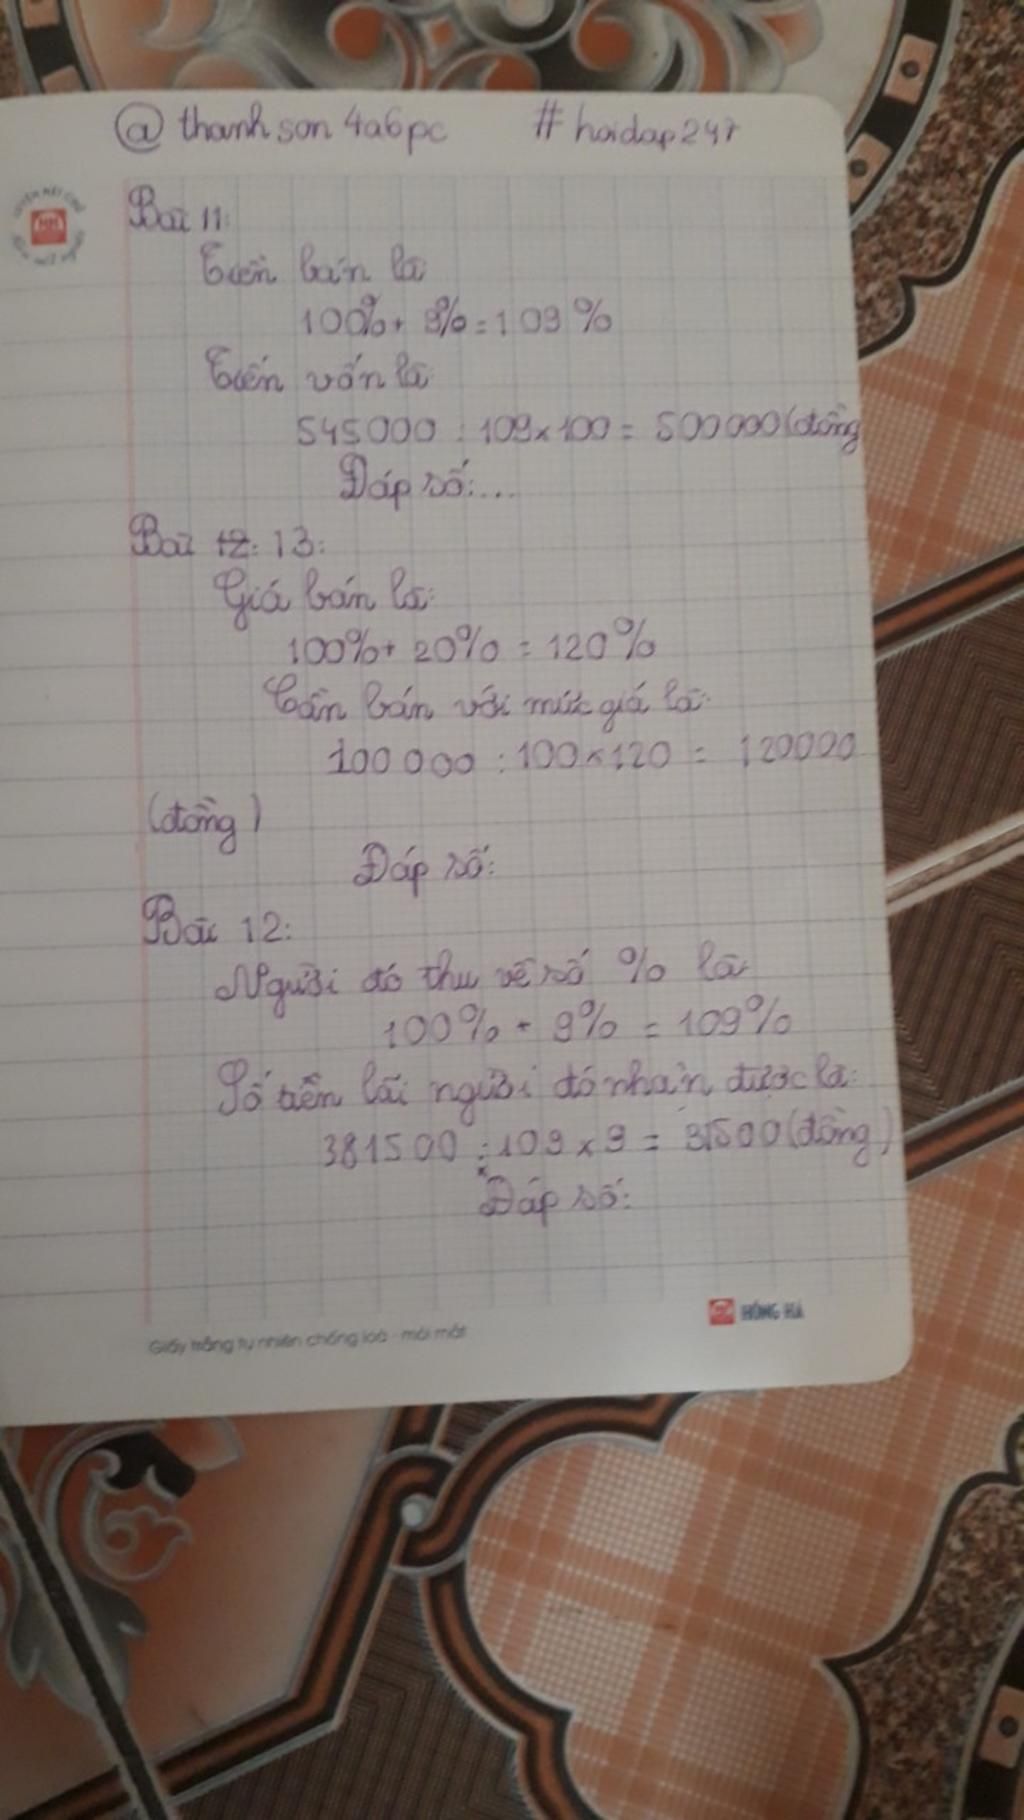 @ thanhson4a6pc #hoidap247
Bài 11:
Tiền bán là
100% + 9% = 109%
Tiền vốn là
545000 : 109 x 100 = 500000 (đồng
Đáp số:...
Bài 12: 13:
Giá bán là:
100% + 20% = 120%
Cần bán với mức giá là:
100 000 : 100 x 120 = 120000
(đồng)
Đáp số:
Bài 12:
Người đó thu về số % là
100% + 9% = 109%
Số tiền lãi người đó nhận được là:
381500 : 109 x 9 = 31500 (đồng)
Đáp số:
Giấy trắng tự nhiên chống loá - mỏi mắt
HỒNG HÀ